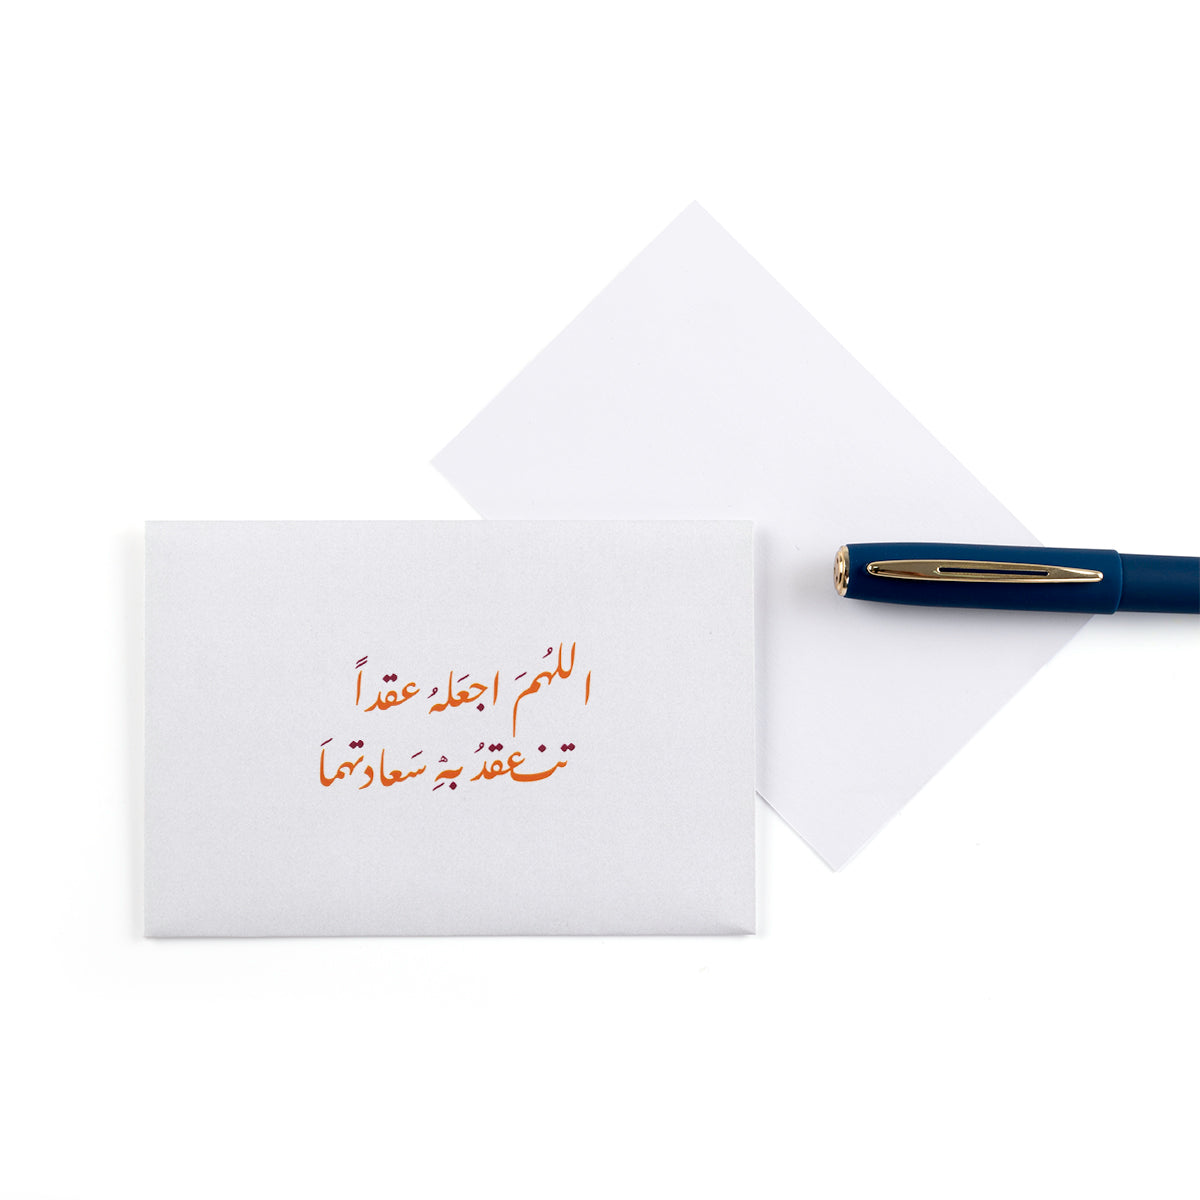 اللهُمَ اجعَلهُ عقداً
تنعقدُ بهِ سَعادتهماَ